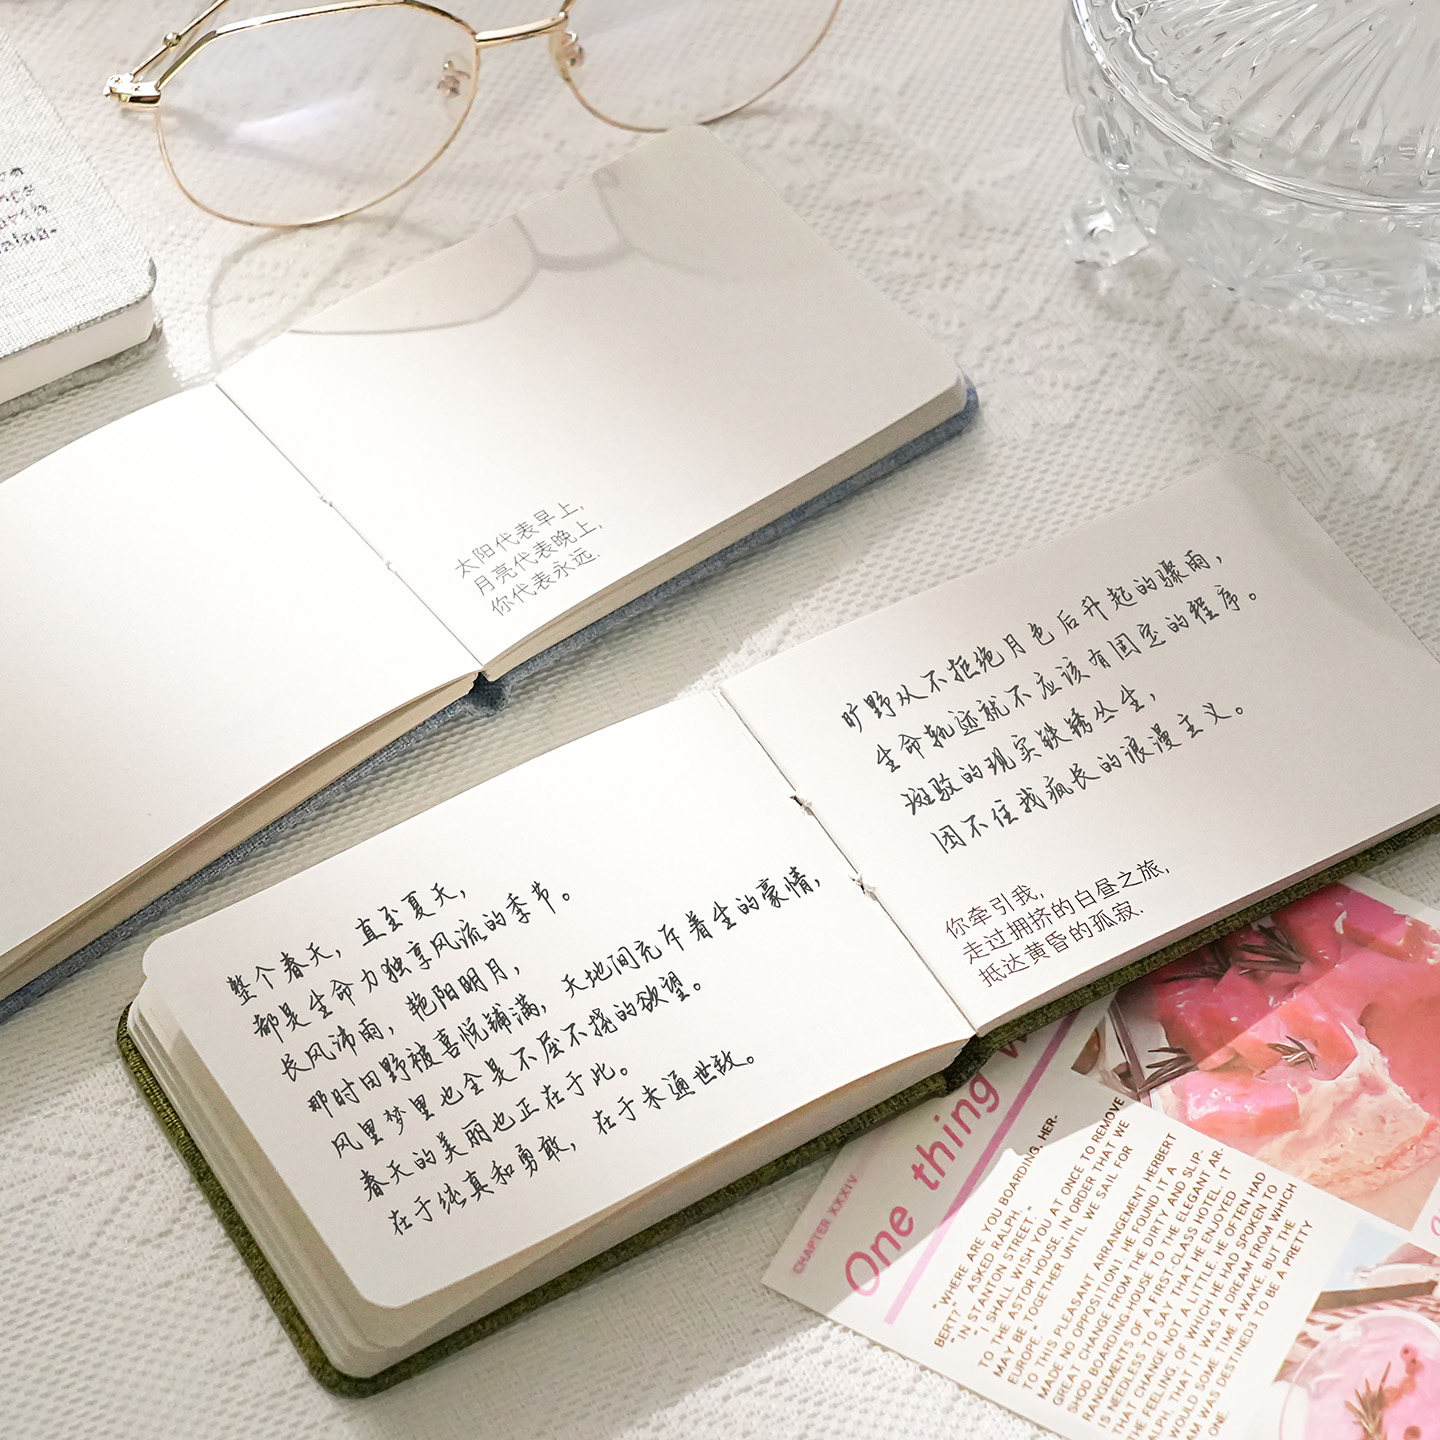 太阳代表早上，
月亮代表晚上，
你代表永远.
旷野从不拒绝月色后升起的骤雨，
生命轨迹就不应该有固定的程序。
斑驳的现实铁锈丛生，
困不住我疯长的浪漫主义。
你牵引我，
走过拥挤的白昼之旅，
抵达黄昏的孤寂.
整个春天，直至夏天，
都是生命力独享风流的季节。
长风沛雨，艳阳明月，
那时田野被喜悦铺满，天地间充斥着生的豪情，
风里梦里也全是不屈不挠的欲望。
春天的美丽也正在于此。
在于纯真和勇敢，在于未通世故。
CHAPTER XXXIV
One thing
"WHERE ARE YOU BOARDING, HER-
BERT?" ASKED RALPH.
"IN STANTON STREET."
"I SHALL WISH YOU AT ONCE TO REMOVE
TO THE ASTOR HOUSE, IN ORDER THAT WE
MAY BE TOGETHER UNTIL WE SAIL FOR
EUROPE."
TO THIS PLEASANT ARRANGEMENT HERBERT
MADE NO OPPOSITION1. HE FOUND IT A
GREAT CHANGE FROM THE DIRTY AND SLIP-
SHOD BOARDING-HOUSE TO THE ELEGANT AR-
RANGEMENTS OF A FIRST-CLASS HOTEL. IT
IS NEEDLESS TO SAY THAT HE ENJOYED
THAT CHANGE NOT A LITTLE. HE OFTEN HAD
THE FEELING, OF WHICH HE HAD SPOKEN TO
ALPH, THAT IT WAS A DREAM FROM WHICH
WOULD SOME TIME AWAKE, BUT THE
AM WAS DESTINED3 TO BE A PRETTY
ONE.